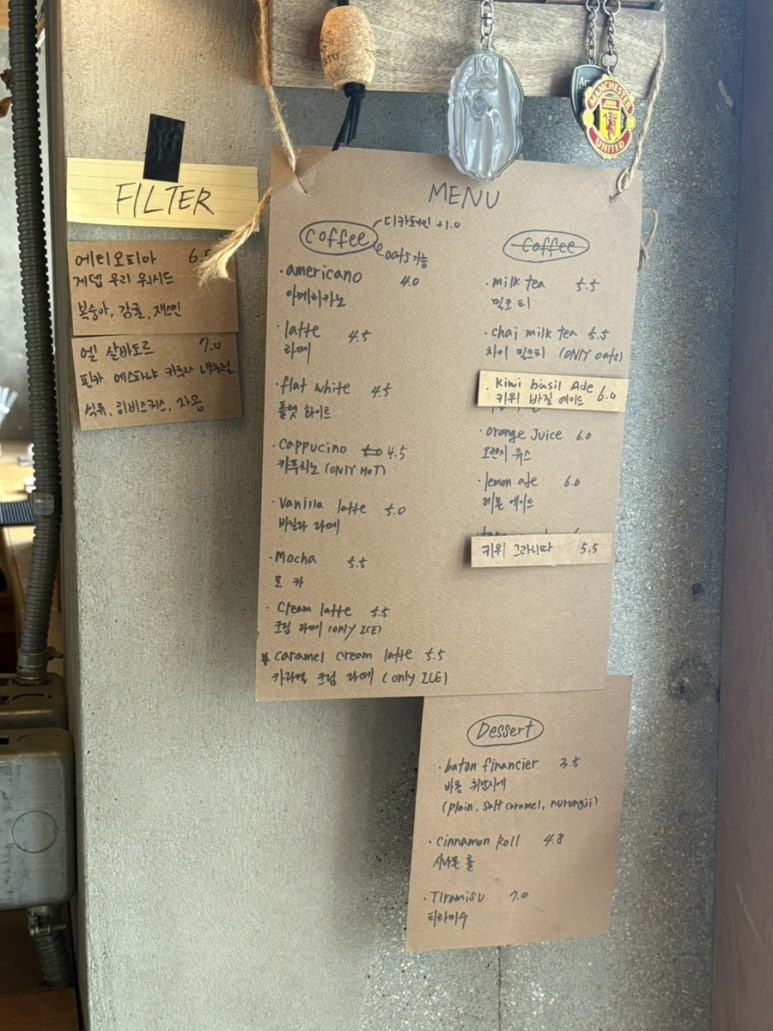 FILTER
에티오피아 6.5
게뎁 우리 워시드
복숭아, 감귤, 재스민
엘 살바도르 7.0
핀카 에스파냐 카투라 내추럴
석류, 히비스커스, 자몽
MENU
coffee
디카페인 +1.0
oats 가능
· americano 4.0
아메리카노
· latte 4.5
라떼
· flat white 4.5
플랫 화이트
· cappucino 4.5
카푸치노 (ONLY HOT)
· vanilla latte 5.0
바닐라 라떼
· Mocha 5.5
모카
· cream latte 5.5
크림 라떼 (ONLY ICE)
caramel cream latte 5.5
카라멜 크림 라떼 (only ICE)
Coffee
· milk tea 5.5
밀크티
· chai milk tea 5.5
차이 밀크티 (ONLY oats)
· Kiwi basil Ade 6.0
키위 바질 에이드
· orange Juice 6.0
오렌지 쥬스
· lemon ade 6.0
레몬 에이드
키위 그라니따 5.5
Dessert
· baton financier 3.5
바통 휘낭시에
(plain, salt caramel, nurungji)
· cinnamon Roll 4.8
시나몬 롤
· Tiramisu 7.0
티라미수
MANCHESTER
UNITED